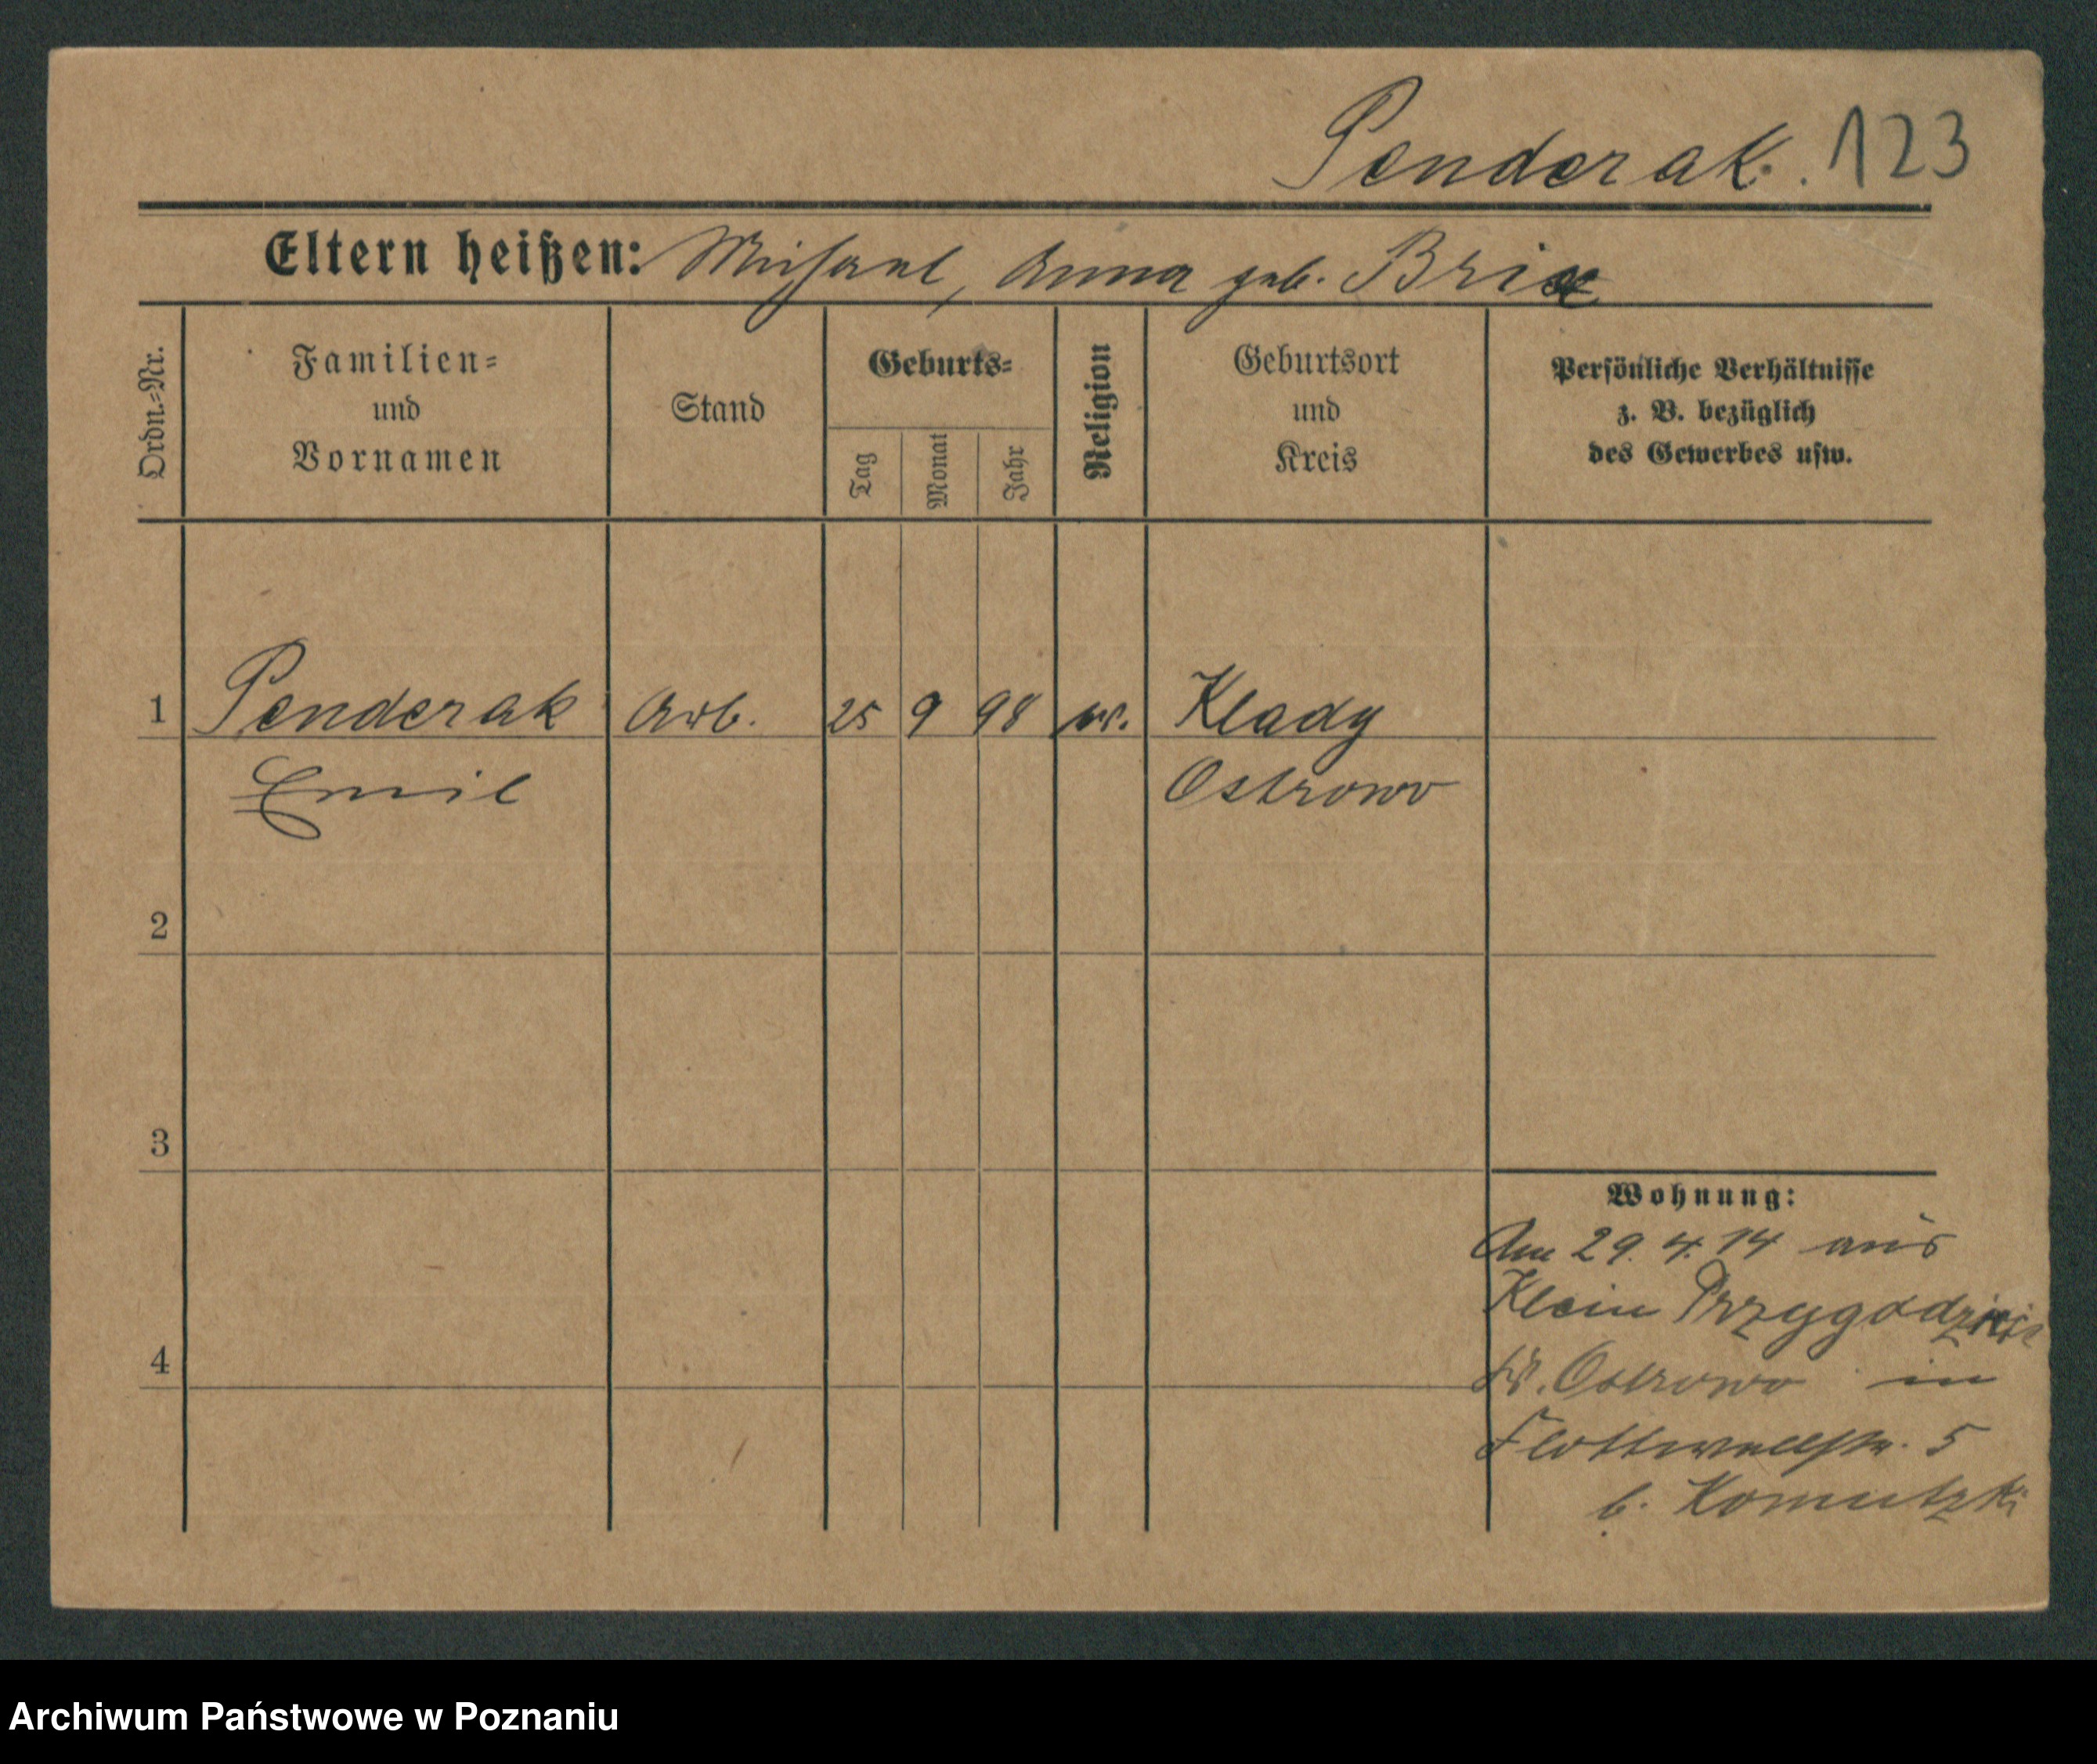 Penderak. 123
Eltern heißen: Michael, Anna geb. Brix
Ordn.-Nr. Familien- und Vornamen Stand Geburts- Tag Monat Jahr Religion Geburtsort und Kreis Persönliche Verhältnisse z. B. bezüglich des Gewerbes usw.
1 Penderak Arb. 25 9 98 Klady
Emil Ostrowo
2
3
Wohnung:
Am 29. 4. 14 aus
Klein Przygodzice
4
Kr. Ostrowo in
Flottwellstr. 5
b.
Archiwum Państwowe w Poznaniu